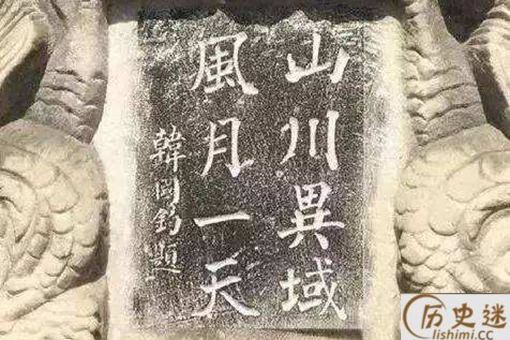 山川異域
風月一天
韓國鈞題
历史迷
lishimi.cc